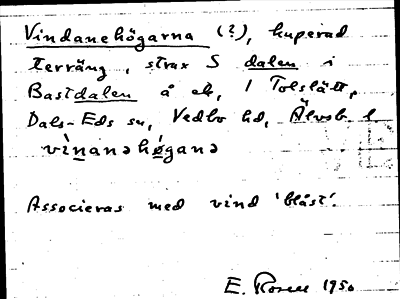 Vindanehögarna (?), kuperad
terräng, strax S dalen i
Bastdalen å ek, 1 Tolslätt,
Dals-Eds sn, Vedbo hd, Älvsb. l
vìnanə hø̀ganə
Associeras med vind 'blåst'.
E. Rosell 1950